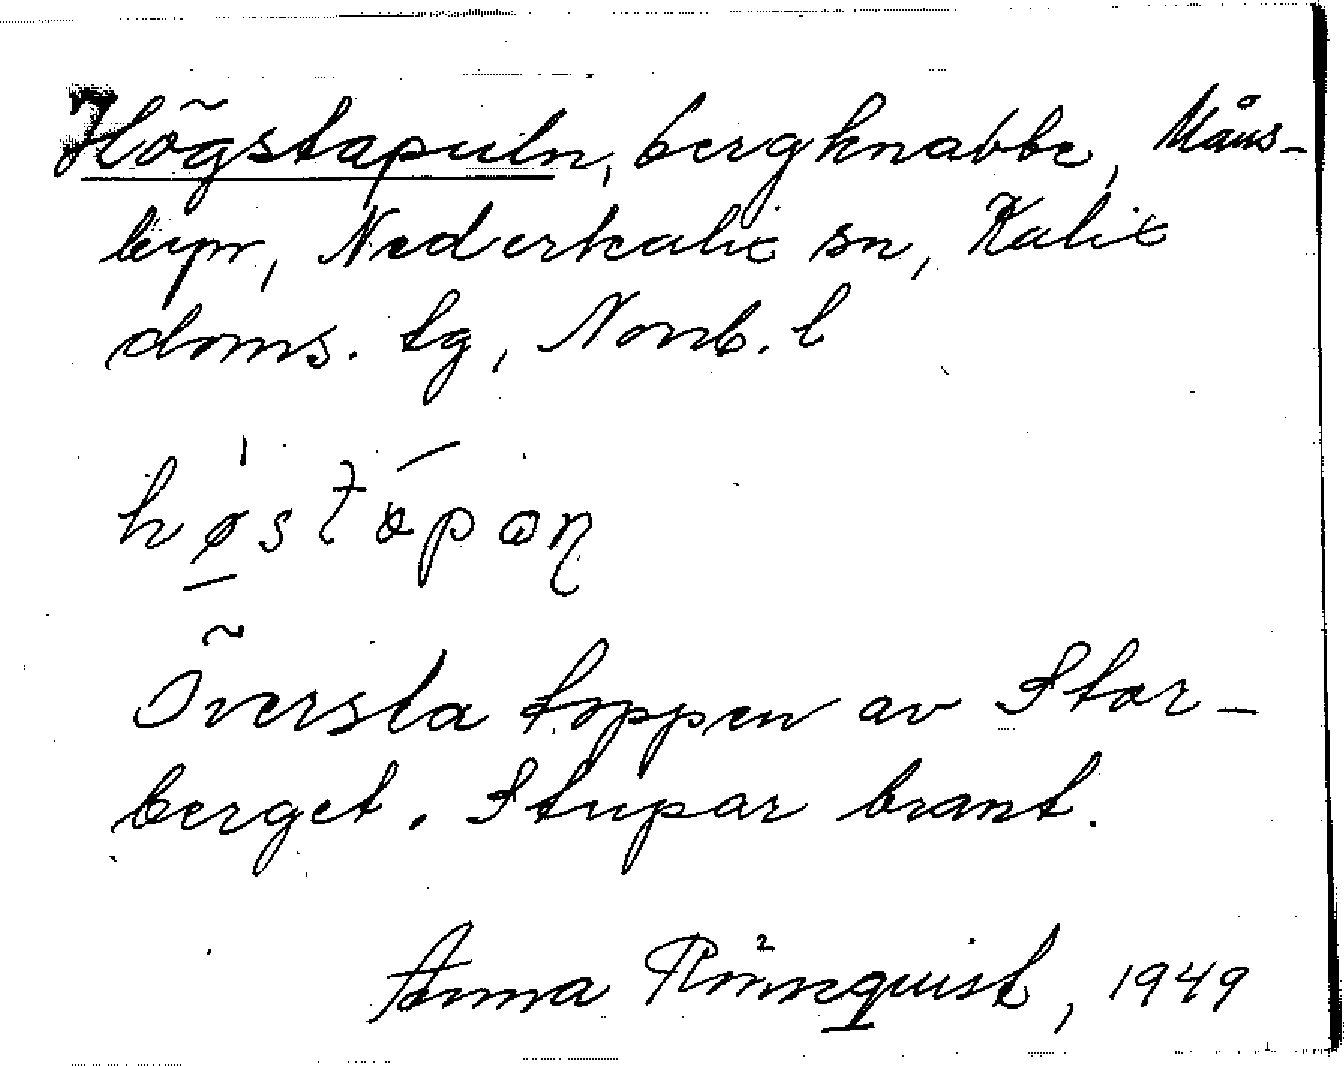 Högstapuln, bergknabbe, Måns-
byn, Nederkalix sn, Kalix
doms. tg, Norrb. l
høstapaɳ
Översta toppen av Stor-
berget. Stupar brant.
Anna Rönnquist, 1949